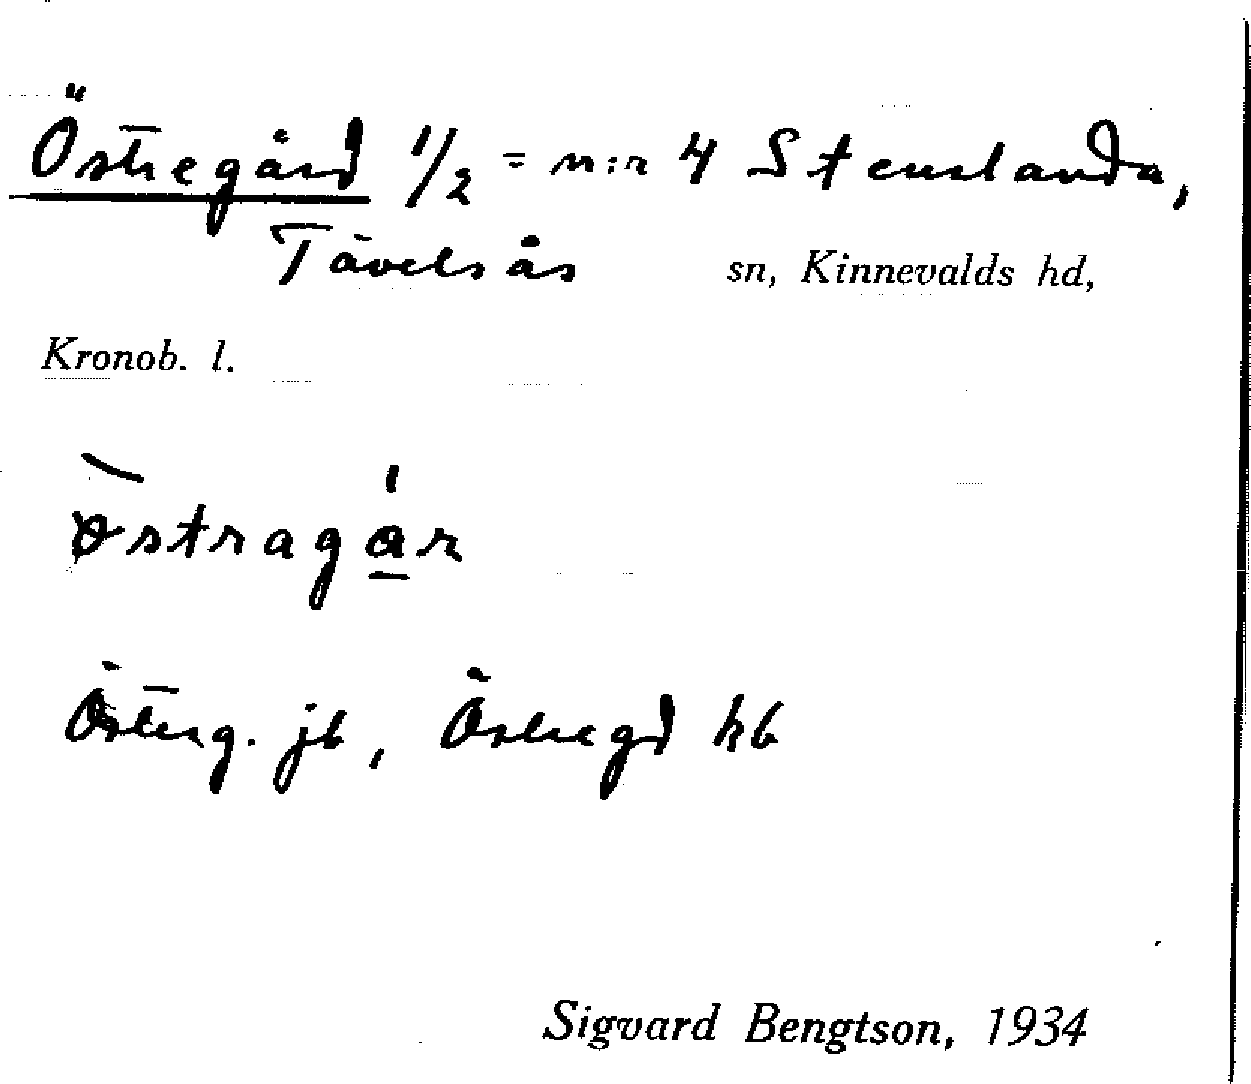 Östregård 1/2 = n:r 4 Stenslanda,
Tävelsås sn, Kinnevalds hd,
Kronob. l.
östragår
Österg. jb, Östregd hb
Sigvard Bengtson, 1934